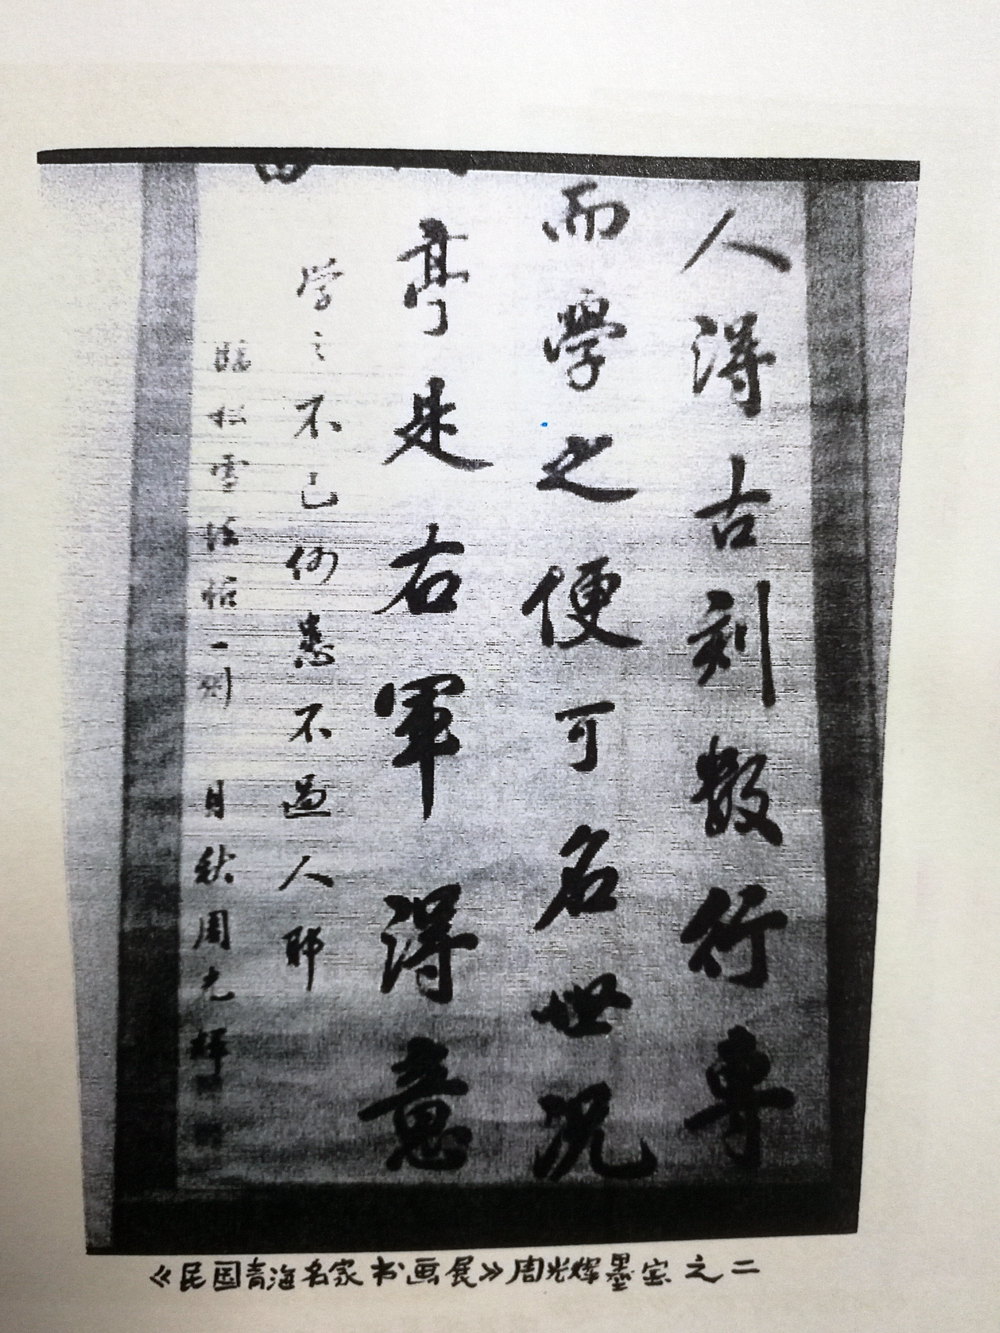 人得古刻数行專
而學之便可名世况
亭是右軍得意
学之不已何患不過人耶
临松雪 一则 月秋周光輝
《民国青海名家书画展》周光辉墨宝之二